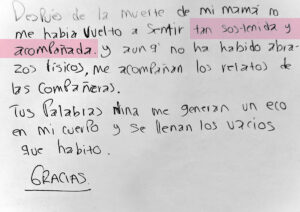 Después de la muerte de mi mamá no
me había vuelto a sentir tan sostenida y
acompañada. y aunq' no ha habido abra-
zos físicos, me acompañan los relatos de
las compañeras.
Tus Palabras Nina me generan un eco
en mi cuerpo y se llenan los vacíos
que habito.
GRACIAS